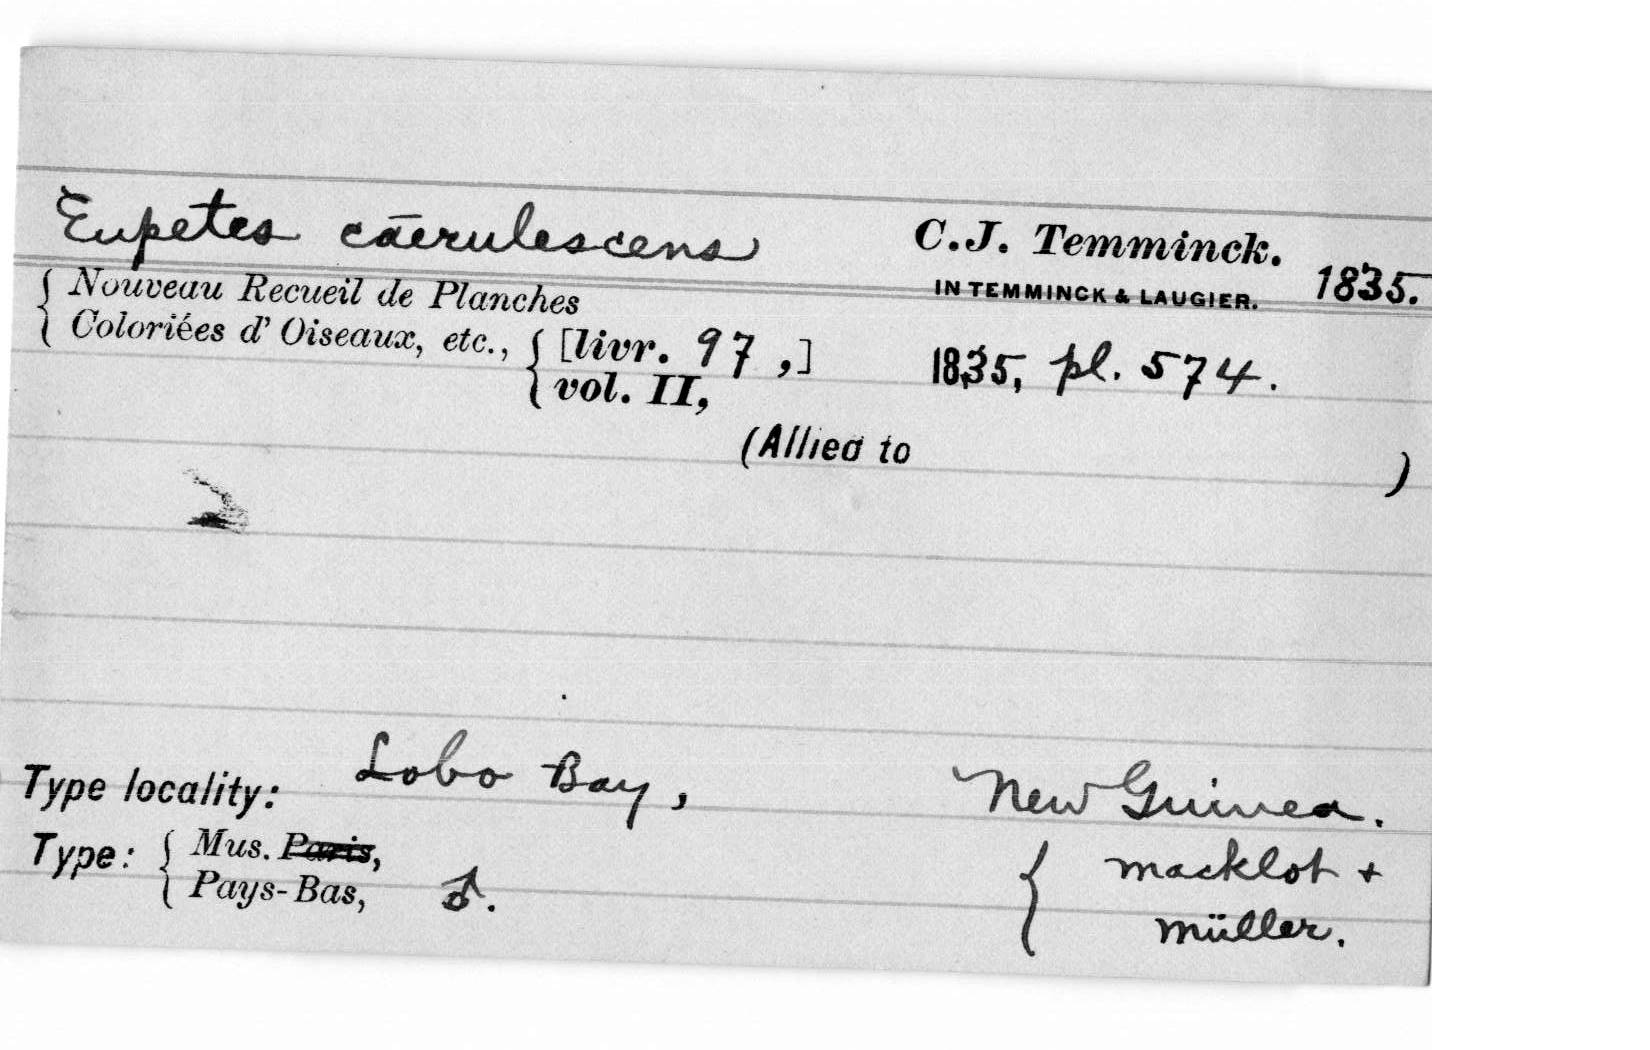 Eupetes cāerulescens C.J. Temminck.
IN TEMMINCK & LAUGIER. 1835.
{ Nouveau Recueil de Planches
Coloriées d' Oiseaux, etc., { [livr. 97,] 1835, pl. 574.
vol. II,
(Allied to )
Type locality: Lobo Bay, New Guinea.
Type: { Mus. Paris, { Macklot +
Pays-Bas, ♂. Müller.